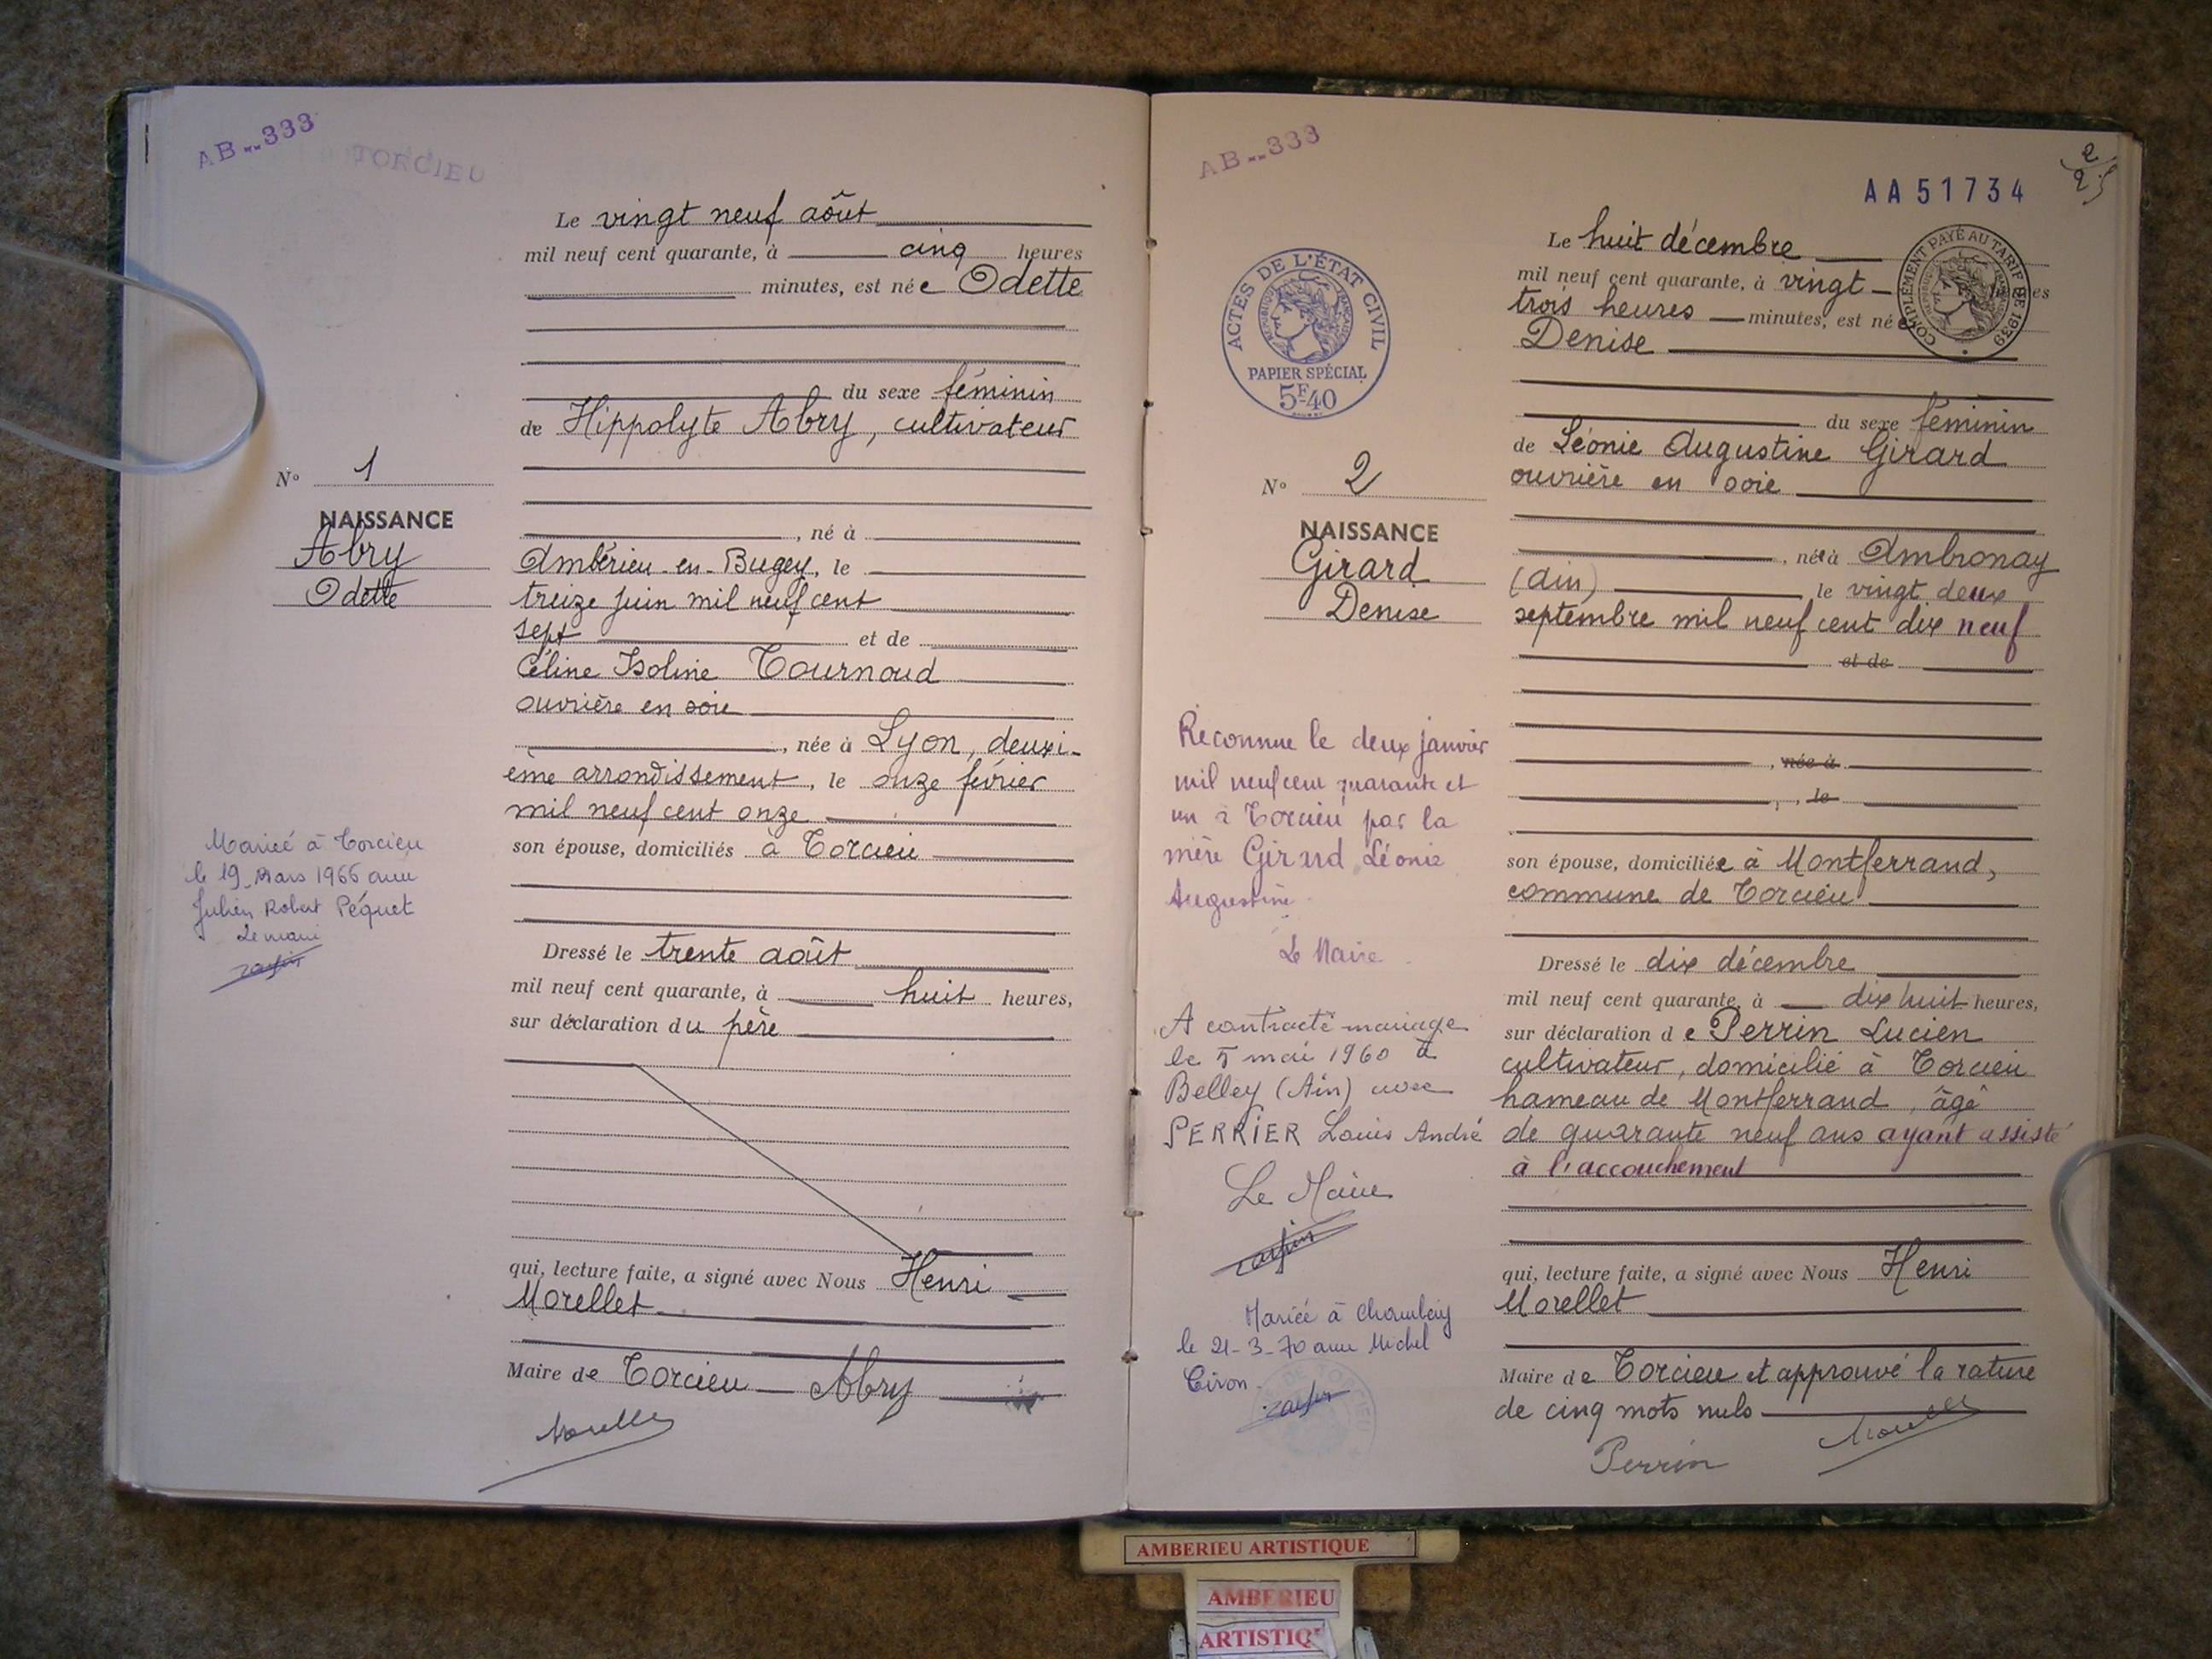 AB--333
TORCIEU
Le vingt neuf août
mil neuf cent quarante, à cinq heures
minutes, est née Odette
du sexe féminin
de Hippolyte Abry, cultivateur
N° 1
NAISSANCE
Abry
Odette
, né à
Ambérieu-en-Bugey, le
treize juin mil neuf cent
sept et de
Céline Isoline Tournoud
ouvrière en soie
, née à Lyon, deuxi-
ème arrondissement, le onze février
mil neuf cent onze
son épouse, domiciliés à Torcieu
Mariée à Torcieu
le 19 Mars 1966 avec
Julien Robert Péquet
Le maire
Dressé le trente août
mil neuf cent quarante, à huit heures,
sur déclaration du père
qui, lecture faite, a signé avec Nous Henri
Morellet
Maire de Torcieu Abry
Morellet
AB--333
2
AA51734
ACTES DE L'ÉTAT CIVIL
RÉPUBLIQUE FRANÇAISE
PAPIER SPÉCIAL
5F40
COMPLÉMENT PAYÉ AU TARIF DE 1939
Le huit décembre
mil neuf cent quarante, à vingt
trois heures minutes, est née
Denise
du sexe féminin
de Léonie Augustine Girard
ouvrière en soie
N° 2
NAISSANCE
Girard
Denise
, née à Ambronay
(Ain) le vingt deux
septembre mil neuf cent dix neuf
et de
, née à
, le
son épouse, domiciliée à Montferrand,
commune de Torcieu
Reconnue le deux janvier
mil neuf cent quarante et
un à Torcieu par la
mère Girard Léonie
Augustine
Le Maire
A contracté mariage
le 5 mai 1960 à
Belley (Ain) avec
PERRIER Louis André
Le Maire
Mariée à Chambéry
le 21-3-70 avec Michel
Ciron
Dressé le dix décembre
mil neuf cent quarante, à dix huit heures,
sur déclaration de Perrin Lucien
cultivateur, domicilié à Torcieu
hameau de Montferrand, âgé
de quarante neuf ans ayant assisté
à l'accouchement
qui, lecture faite, a signé avec Nous Henri
Morellet
Maire de Torcieu et approuvé la rature
de cinq mots nuls
Morellet
Perrin
AMBERIEU ARTISTIQUE
AMBERIEU
ARTISTIQ